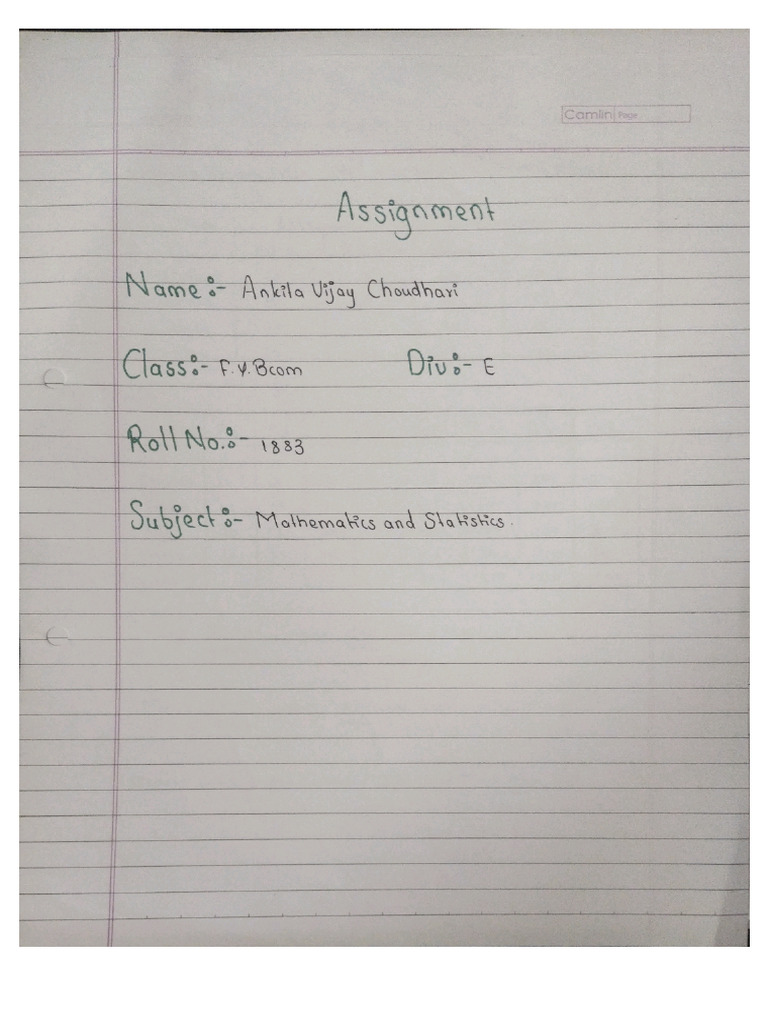 Camlin Page
Assignment
Name:- Ankita Vijay Choudhari
Class:- F.Y.Bcom Div:- E
Roll No.:- 1883
Subject:- Mathematics and Statistics.